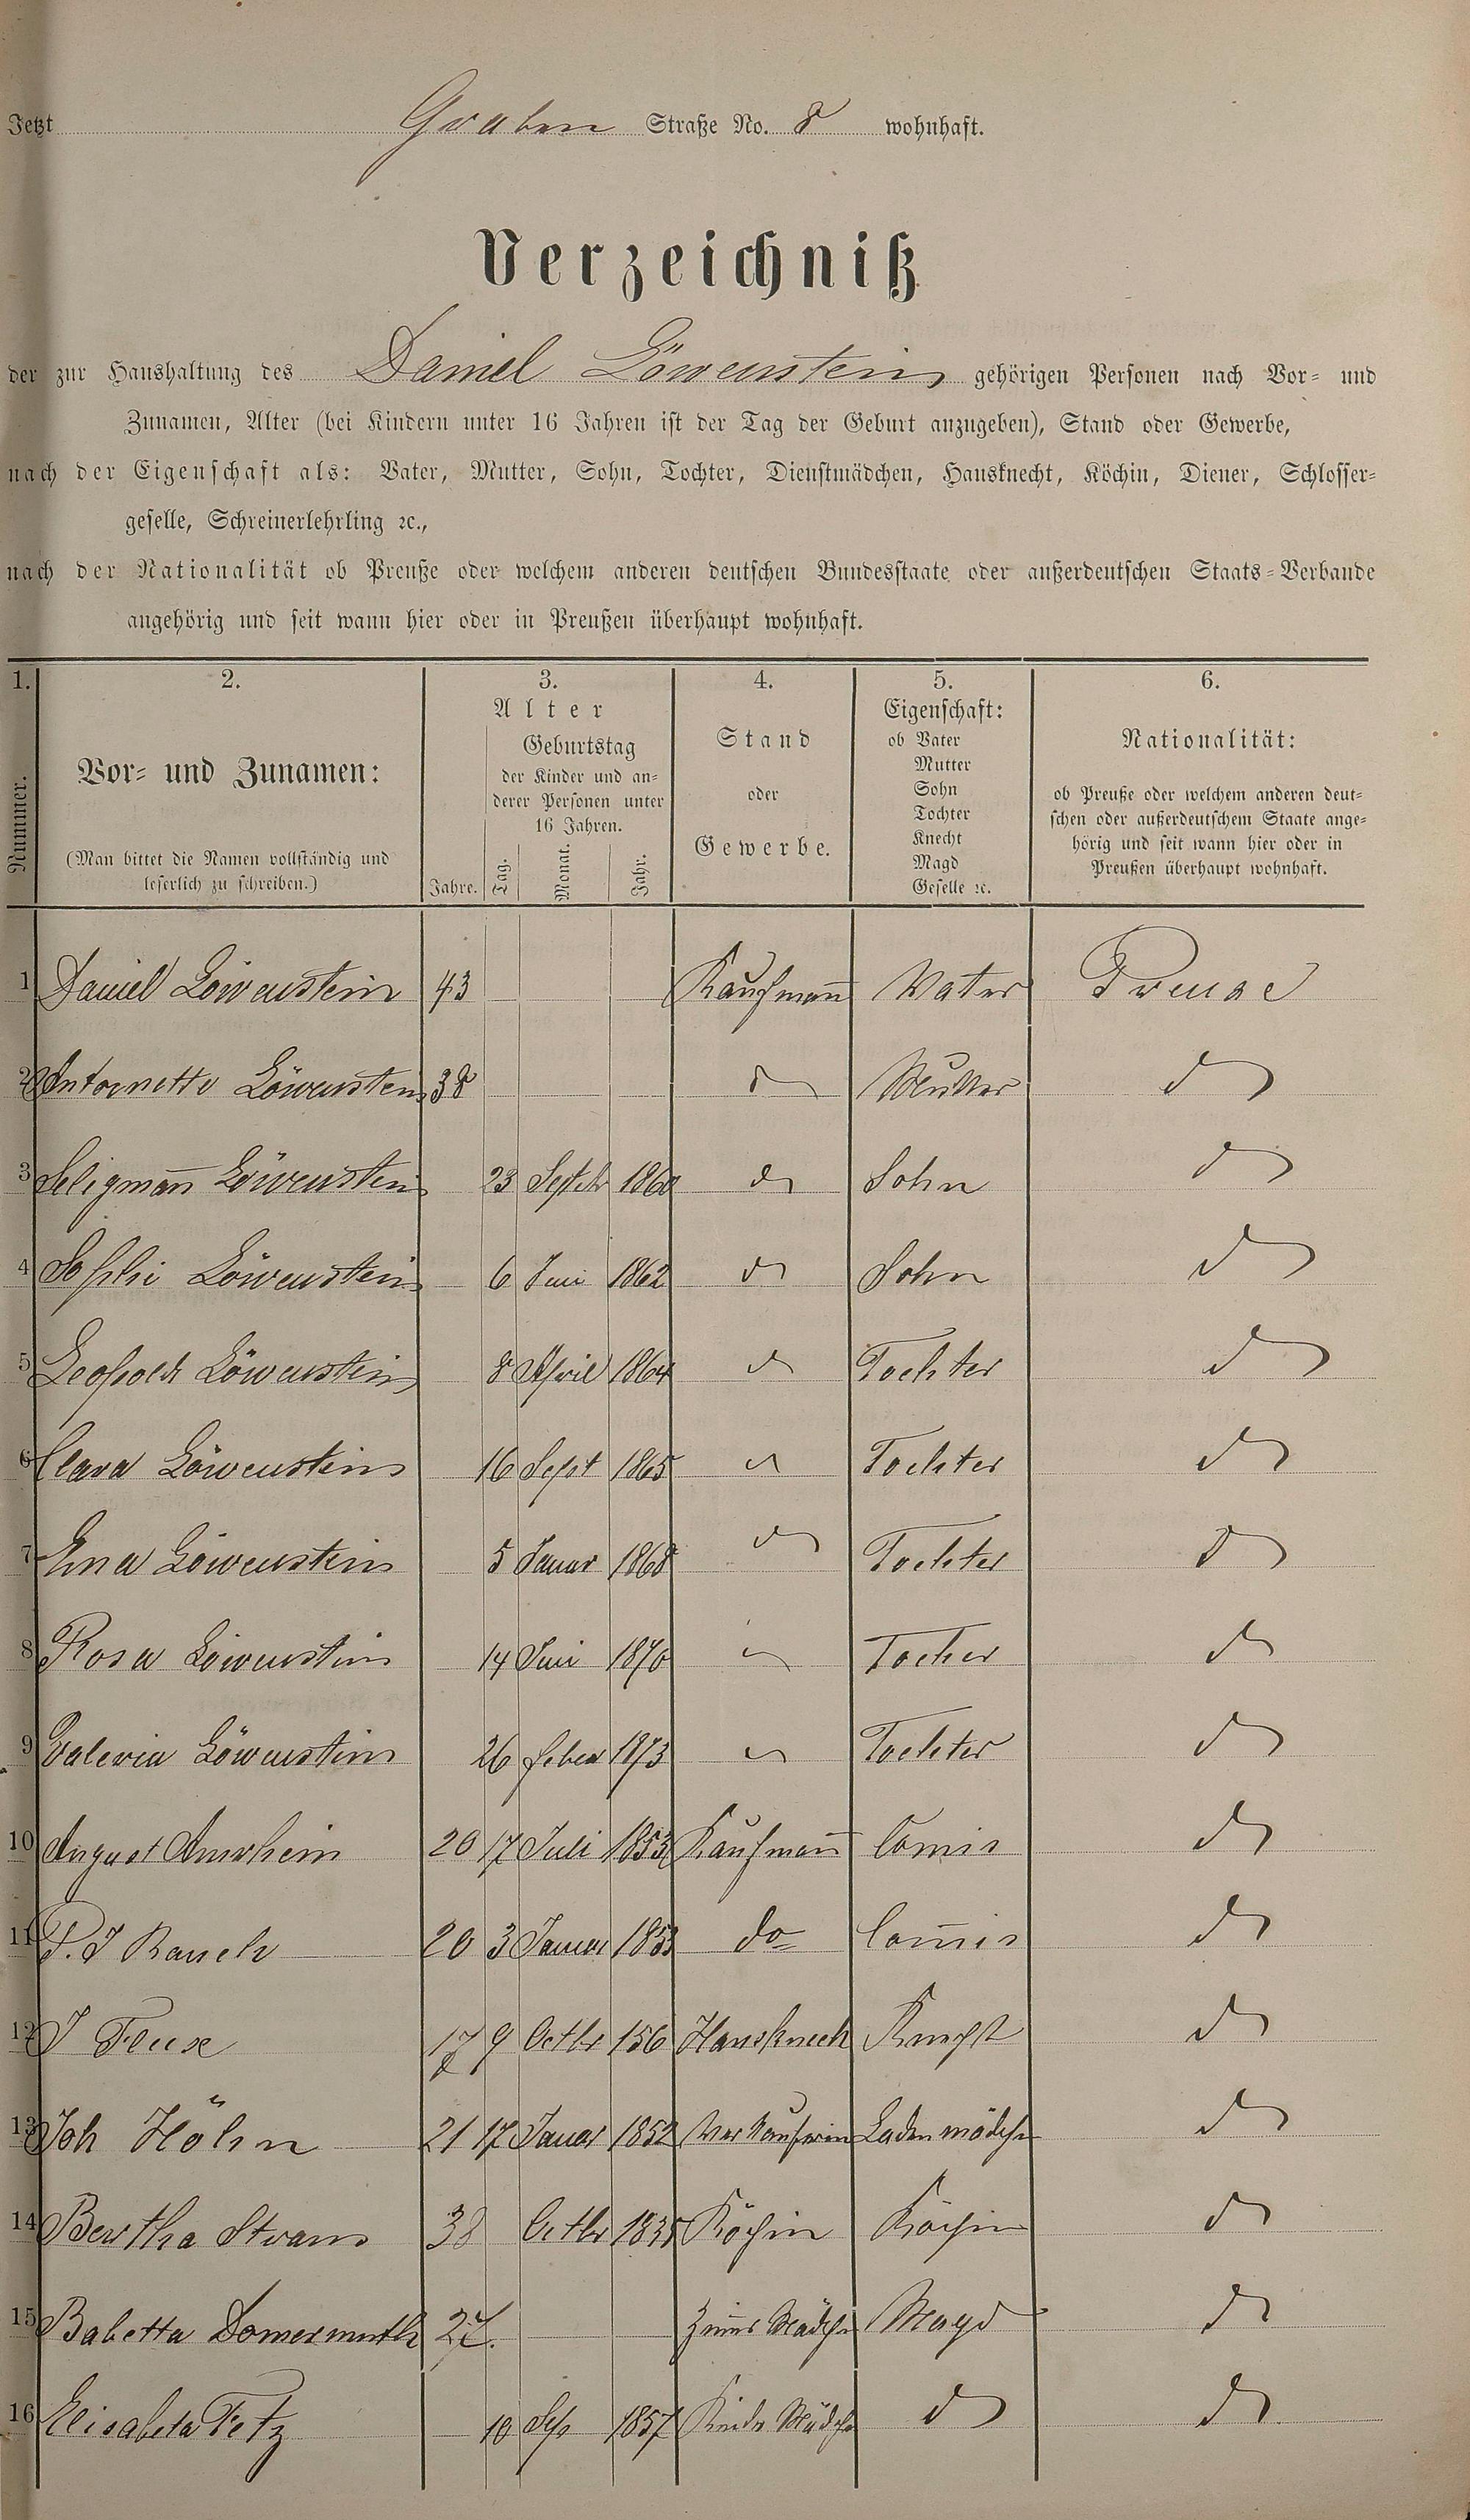 Jetzt Graben Straße No. 8 wohnhaft.
Verzeichniß
der zur Haushaltung des Daniel Löwenstein gehörigen Personen nach Vor- und
Zunamen, Alter (bei Kindern unter 16 Jahren ist der Tag der Geburt anzugeben), Stand oder Gewerbe,
nach der Eigenschaft als: Vater, Mutter, Sohn, Tochter, Dienstmädchen, Hausknecht, Köchin, Diener, Schlosser-
geselle, Schreinerlehrling ꝛc.,
nach der Nationalität ob Preuße oder welchem anderen deutschen Bundesstaate oder außerdeutschen Staats-Verbande
angehörig und seit wann hier oder in Preußen überhaupt wohnhaft.
1. 2. 3. 4. 5. 6.
Nummer.
Vor- und Zunamen:
(Man bittet die Namen vollständig und
leserlich zu schreiben.)
Alter
Jahre.
Geburtstag
der Kinder und an-
derer Personen unter
16 Jahren.
Tag. Monat. Jahr.
Stand
oder
Gewerbe.
Eigenschaft:
ob Vater
Mutter
Sohn
Tochter
Knecht
Magd
Geselle ꝛc.
Nationalität:
ob Preuße oder welchem anderen deut-
schen oder außerdeutschem Staate ange-
hörig und seit wann hier oder in
Preußen überhaupt wohnhaft.
1 Daniel Löwenstein 43 Kaufmann Vater Preuse
2 Antornette Löwenstein 38 do Mutter do
3 Seligmann Löwenstein 23 Septbr 1860 do Sohn do
4 Sophi Löwenstein 6 Juni 1862 do Sohn do
5 Leopold Löwenstein 8 April 1864 do Tochter do
6 Clara Löwenstein 16 Sept 1865 do Tochter do
7 Ema Löwenstein 5 Januar 1868 do Tochter do
8 Rosa Löwenstein 14 Juni 1870 do Tocher do
9 Valeria Löwenstein 26 Feber 1873 do Tochter do
10 August Amrhein 20 17 Juli 1853 Kaufmann Comis do
11 P. J Rauch 20 3 Januar 1853 do Commis do
12 J 17 9 Octbr 156 Hausknech Knecht do
13 Joh Höhn 21 17 Januar 1852 Verkauferin Ladenmädchen do
14 Bertha Straus 38 Octbr 1835 Köchin Köchin do
15 Babetta Domermuth 27. Zimmer Mädchen Magd do
16 Elisabeta Fetz 10 Sep 1857 Kinder Mädchen do do